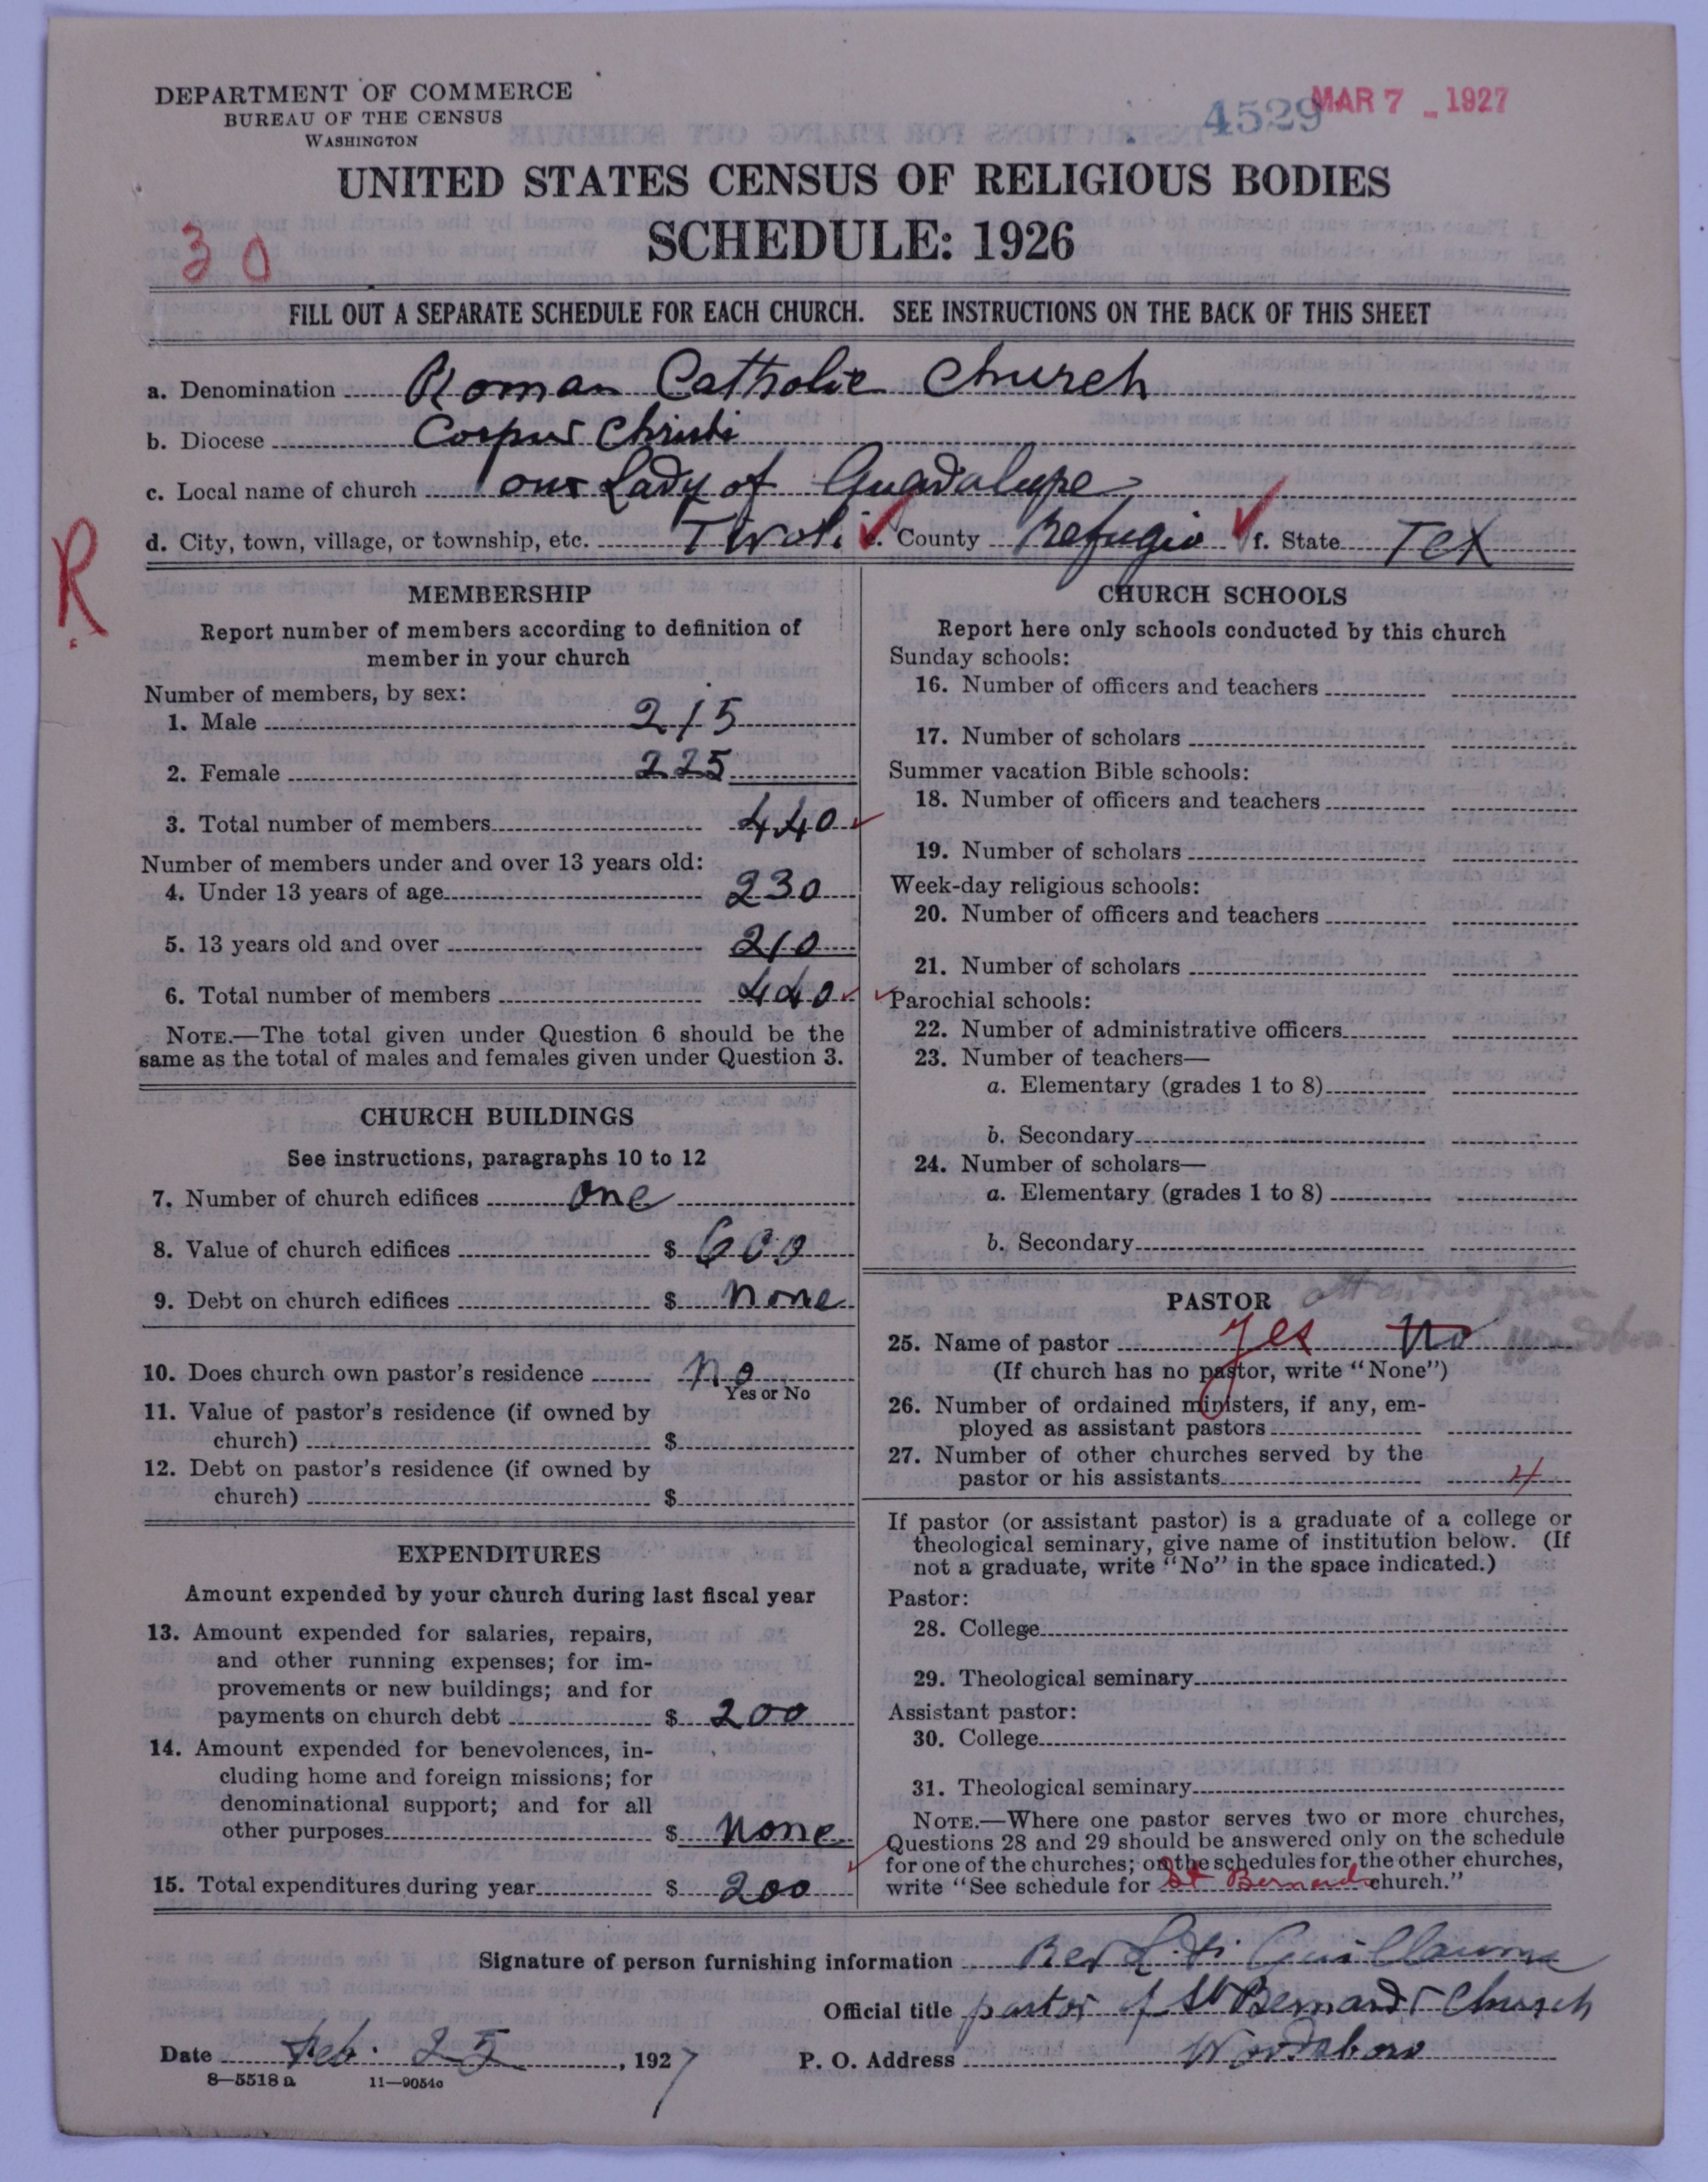 DEPARTMENT OF COMMERCE
BUREAU OF THE CENSUS
WASHINGTON
4529
MAR 7 - 1927
UNITED STATES CENSUS OF RELIGIOUS BODIES
SCHEDULE: 1926
30
FILL OUT A SEPARATE SCHEDULE FOR EACH CHURCH. SEE INSTRUCTIONS ON THE BACK OF THIS SHEET
a. Denomination Roman Catholic Church
b. Diocese Corpus Christi
c. Local name of church our Lady of Guadalupe
d. City, town, village, or township, etc. Tivoli e. County Refugio f. State Tex
R
MEMBERSHIP
Report number of members according to definition of
member in your church
Number of members, by sex:
1. Male 215
2. Female 225
3. Total number of members 440
Number of members under and over 13 years old:
4. Under 13 years of age 230
5. 13 years old and over 210
6. Total number of members 440
NOTE.—The total given under Question 6 should be the
same as the total of males and females given under Question 3.
CHURCH BUILDINGS
See instructions, paragraphs 10 to 12
7. Number of church edifices one
8. Value of church edifices $ 600
9. Debt on church edifices $ none
10. Does church own pastor's residence no
Yes or No
11. Value of pastor's residence (if owned by
church) $
12. Debt on pastor's residence (if owned by
church) $
EXPENDITURES
Amount expended by your church during last fiscal year
13. Amount expended for salaries, repairs,
and other running expenses; for im-
provements or new buildings; and for
payments on church debt $ 200
14. Amount expended for benevolences, in-
cluding home and foreign missions; for
denominational support; and for all
other purposes $ none
15. Total expenditures during year $ 200
CHURCH SCHOOLS
Report here only schools conducted by this church
Sunday schools:
16. Number of officers and teachers
17. Number of scholars
Summer vacation Bible schools:
18. Number of officers and teachers
19. Number of scholars
Week-day religious schools:
20. Number of officers and teachers
21. Number of scholars
Parochial schools:
22. Number of administrative officers
23. Number of teachers—
a. Elementary (grades 1 to 8)
b. Secondary
24. Number of scholars—
a. Elementary (grades 1 to 8)
b. Secondary
PASTOR attended from
25. Name of pastor yes No Woodsboro
(If church has no pastor, write "None")
26. Number of ordained ministers, if any, em-
ployed as assistant pastors
27. Number of other churches served by the
pastor or his assistants 4
If pastor (or assistant pastor) is a graduate of a college or
theological seminary, give name of institution below. (If
not a graduate, write "No" in the space indicated.)
Pastor:
28. College
29. Theological seminary
Assistant pastor:
30. College
31. Theological seminary
NOTE.—Where one pastor serves two or more churches,
Questions 28 and 29 should be answered only on the schedule
for one of the churches; on the schedules for the other churches,
write "See schedule for St Bernards church."
Signature of person furnishing information Rev Guillaume
Official title pastor of St Bernards Church
Date Feb. 25, 1927 P. O. Address Woodsboro
8—5518 a 11—9054c